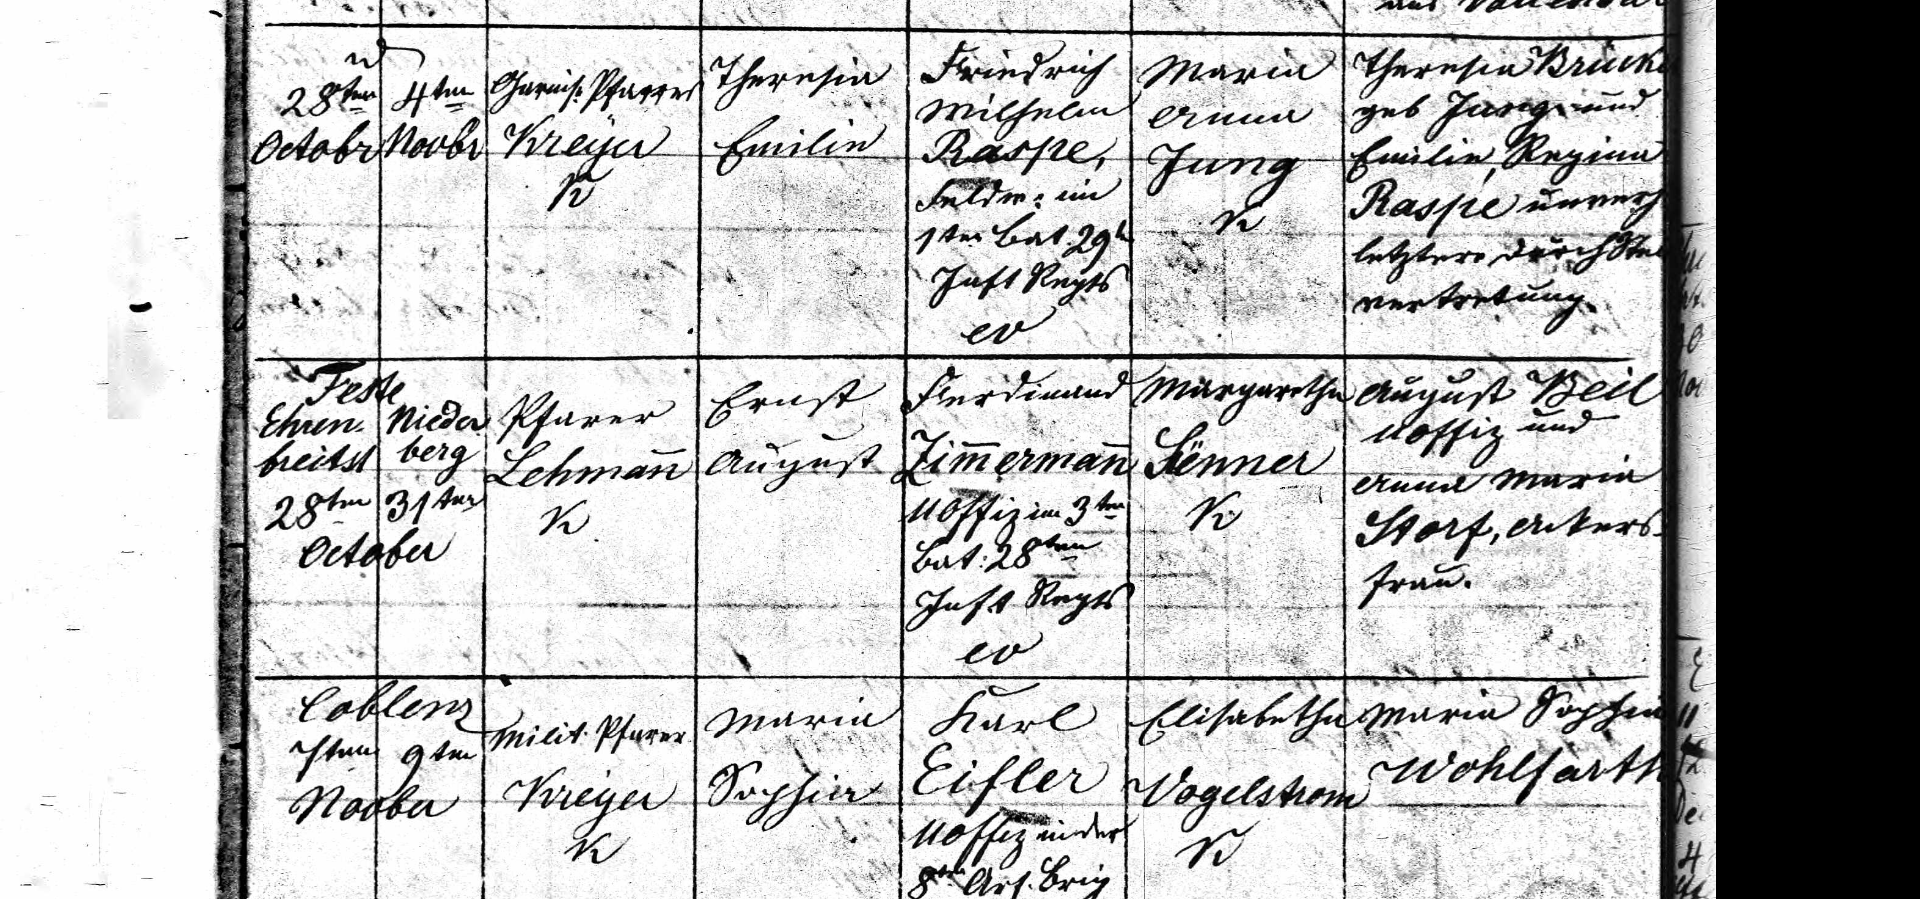 28ten
October
4ten
Novbr
Garnis. Pfarrer
Kreyer
K
Theresia
Emilie
Friedrich
Wilhelm
Raspe,
Feldw: im
1ten Bat. 29t
Inft Regts
ev
Maria
Anna
Jung
K
Theresia Brück
geb Jung und
Emilie, Regina
Raspe unverh
letztere durch Stel
vertretung.
Feste
Ehren.
breitst
28ten
Nieder
berg
31ten
October
Pfarer
Lehmann
K
Ernst
August
Ferdinand
Zimmermann
Uoffiz im 3ten
Bat: 28ten
Inft Regts
ev
Margaretha
K
August Beil
Uoffiz und
Anna Maria
Storf, Ackers-
frau.
Coblenz
7ten 9ten
Novber
Milit. Pfarer
Kreyer
K
Maria
Sophia
Karl
Eifler
Uoffiz in der
8ten Art. Brig
Elisabetha
Vogelstrom
K
Maria Sophia
Wohlfarth